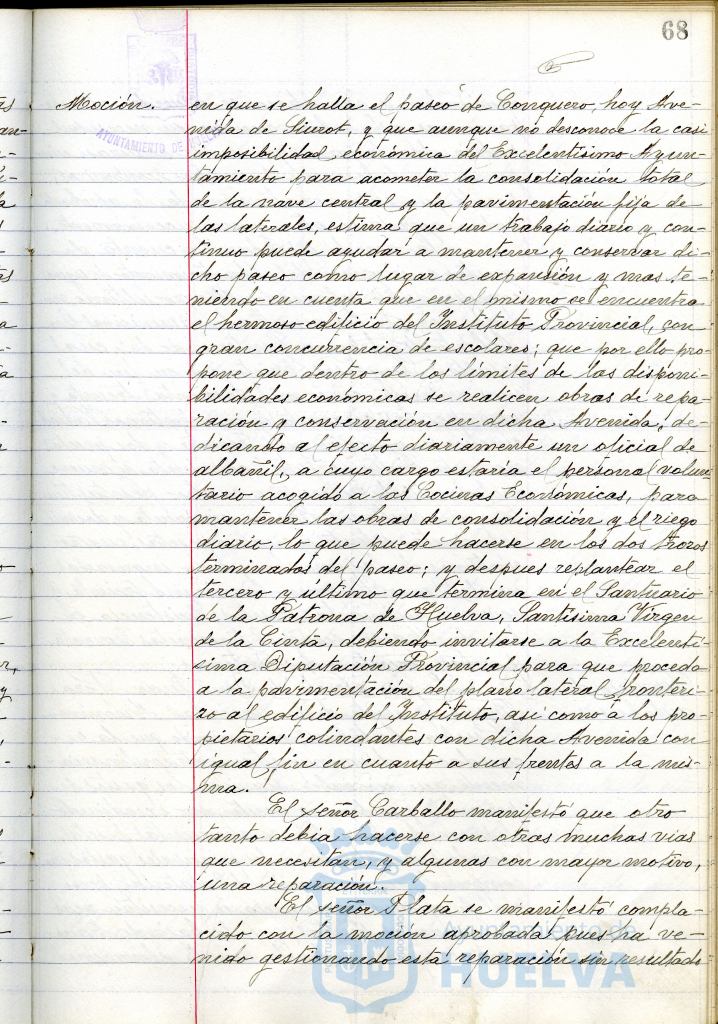 68
Moción.
en que se halla el paseo de Conquero, hoy Ave-
nida de Siurot, y que aunque no desconoce la casi
imposibilidad económica del Excelentísimo Ayun-
tamiento para acometer la consolidación total
de la nave central y la pavimentación fija de
las laterales, estima que un trabajo diario y con-
tinuo puede ayudar a mantener y conservar di-
cho paseo como lugar de expansión y mas te-
niendo en cuenta que en el mismo se encuentra
el hermoso edificio del Instituto Provincial, con
gran concurrencia de escolares; que por ello pro-
pone que dentro de los límites de las disponi-
bilidades económicas se realicen obras de repa-
ración y conservación en dicha Avenida, de-
dicando al efecto diariamente un oficial de
albañil, a cuyo cargo estaría el personal volun-
tario acogido a las Cocinas Económicas, para
mantener las obras de consolidación y el riego
diario, lo que puede hacerse en los dos trozos
terminados del paseo; y despues replantear el
tercero y último que termina en el Santuario
de la Patrona de Huelva, Santísima Virgen
de la Cinta, debiendo invitarse a la Excelentí-
sima Diputación Provincial para que proceda
a la pavimentación del plano lateral fronteri-
zo al edificio del Instituto, asi como a los pro-
pietarios colindantes con dicha Avenida con
igual fin en cuanto a sus frentes a la mis-
ma.
El señor Carballo manifestó que otro
tanto debia hacerse con otras muchas vias
que necesitan, y algunas con mayor motivo,
una reparación.
El señor Plata se manifestó compla-
cido con la moción aprobada pues ha ve-
nido gestionando esta reparación sin resultado
AYUNTAMIENTO DE
Ayuntamiento de
HUELVA